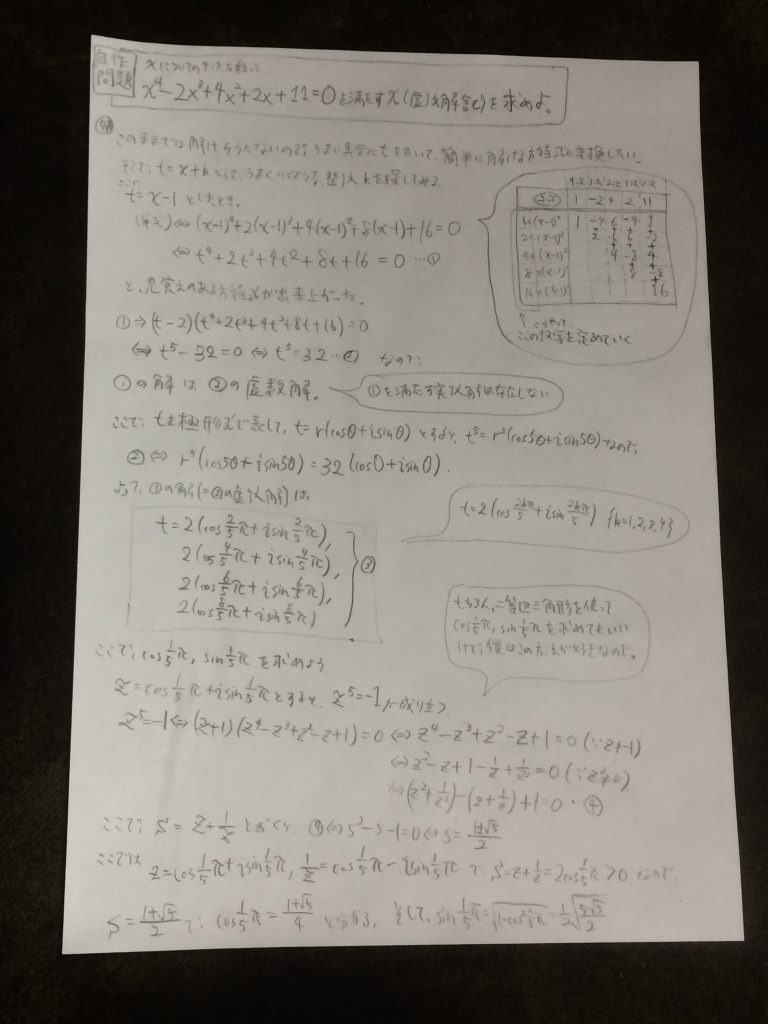 自作問題
xについての4次方程式
x⁴-2x³+4x²+2x+11=0を満たすx(虚数解含む)を求めよ。
このままでは解けそうにないので、うまい具合にtをおいて、簡単に解ける方程式に変換したい。
そこで、t=x+kとして、うまくいくような整数kを探してみる。
ここで
t=x-1としたとき、
(与式)⇔(x-1)⁴+2(x-1)³+4(x-1)²+8(x-1)+16=0
⇔ t⁴+2t³+4t²+8t+16=0 …①
と、見覚えのある方程式が出来上がった。
4次 3次 2次 1次
(与式) 1 -2 4 2 11
1×(x-1)⁴ 1 -4 6 -4 1
2×(x-1)³
4×(x-1)² 4 -8 4
8×(x-1) 8 -8
16×(x-1)⁰ 16
↑こうやって
ここの数字を定めていく
①⇒(t-2)(t⁴+2t³+4t²+8t+16)=0
⇔t⁵-32=0⇔t⁵=32…② なので、
①の解は②の虚数解。
①を満たす実数解は存在しない
ここで、tを極形式で表して、t=r(cosθ+isinθ)とすると、t⁵=r⁵(cos5θ+isin5θ)なので、
②⇔ r⁵(cos5θ+isin5θ)=32(cos0+isin0).
よって、①の解(=②の虚数解)は
t=2(cos2/5π+isin2/5π),
2(cos4/5π+isin4/5π),
2(cos6/5π+isin6/5π),
2(cos8/5π+isin8/5π)
③
t=2(cos2kπ/5+isin2kπ/5) {k=1,2,3,4}
もちろん、二等辺三角形を使って
cos1/5π, sin1/5πを求めてもいい
けど、僕はこの方法が好きなので。
ここで、cos1/5π, sin1/5πを求めよう
z=cos1/5π+isin1/5πとすると、z⁵=-1が成り立つ
z⁵=-1⇔(z+1)(z⁴-z³+z²-z+1)=0⇔z⁴-z³+z²-z+1=0(∵z≠-1)
⇔z²-z+1-1/z+1/z²=0(∵z²≠0)
⇔(z²+1/z²)-(z+1/z)+1=0…④
ここで、s=z+1/zとおくと、④⇔s²-s-1=0⇔s=1±√5/2
ここでは z=cos1/5π+isin1/5π, 1/z=cos1/5π-isin1/5πで、s=z+1/z=2cos1/5π>0なので、
s=1+√5/2で、cos1/5π=1+√5/4と分かる。そして、sin1/5π=√1-cos²1/5π=1/2√5-√5/2